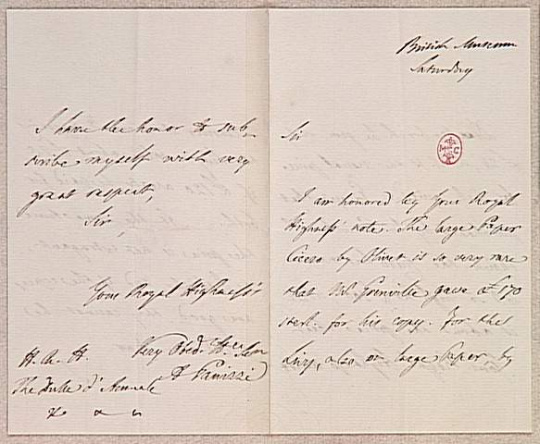 British Museum
Saturday
Sir
I am honored by Your Royal
Highness' note. The large Paper
Cicero by Olivet is so very rare
that Mr. Grenville gave £170
sterl. for his copy. For the
Livy, also on large Paper, by
I have the honor to sub-
scribe myself with very
great respect,
Sir,
Your Royal Highness's
Very Obed.
A Panizzi
H. R. H.
The Duke d'Aumale